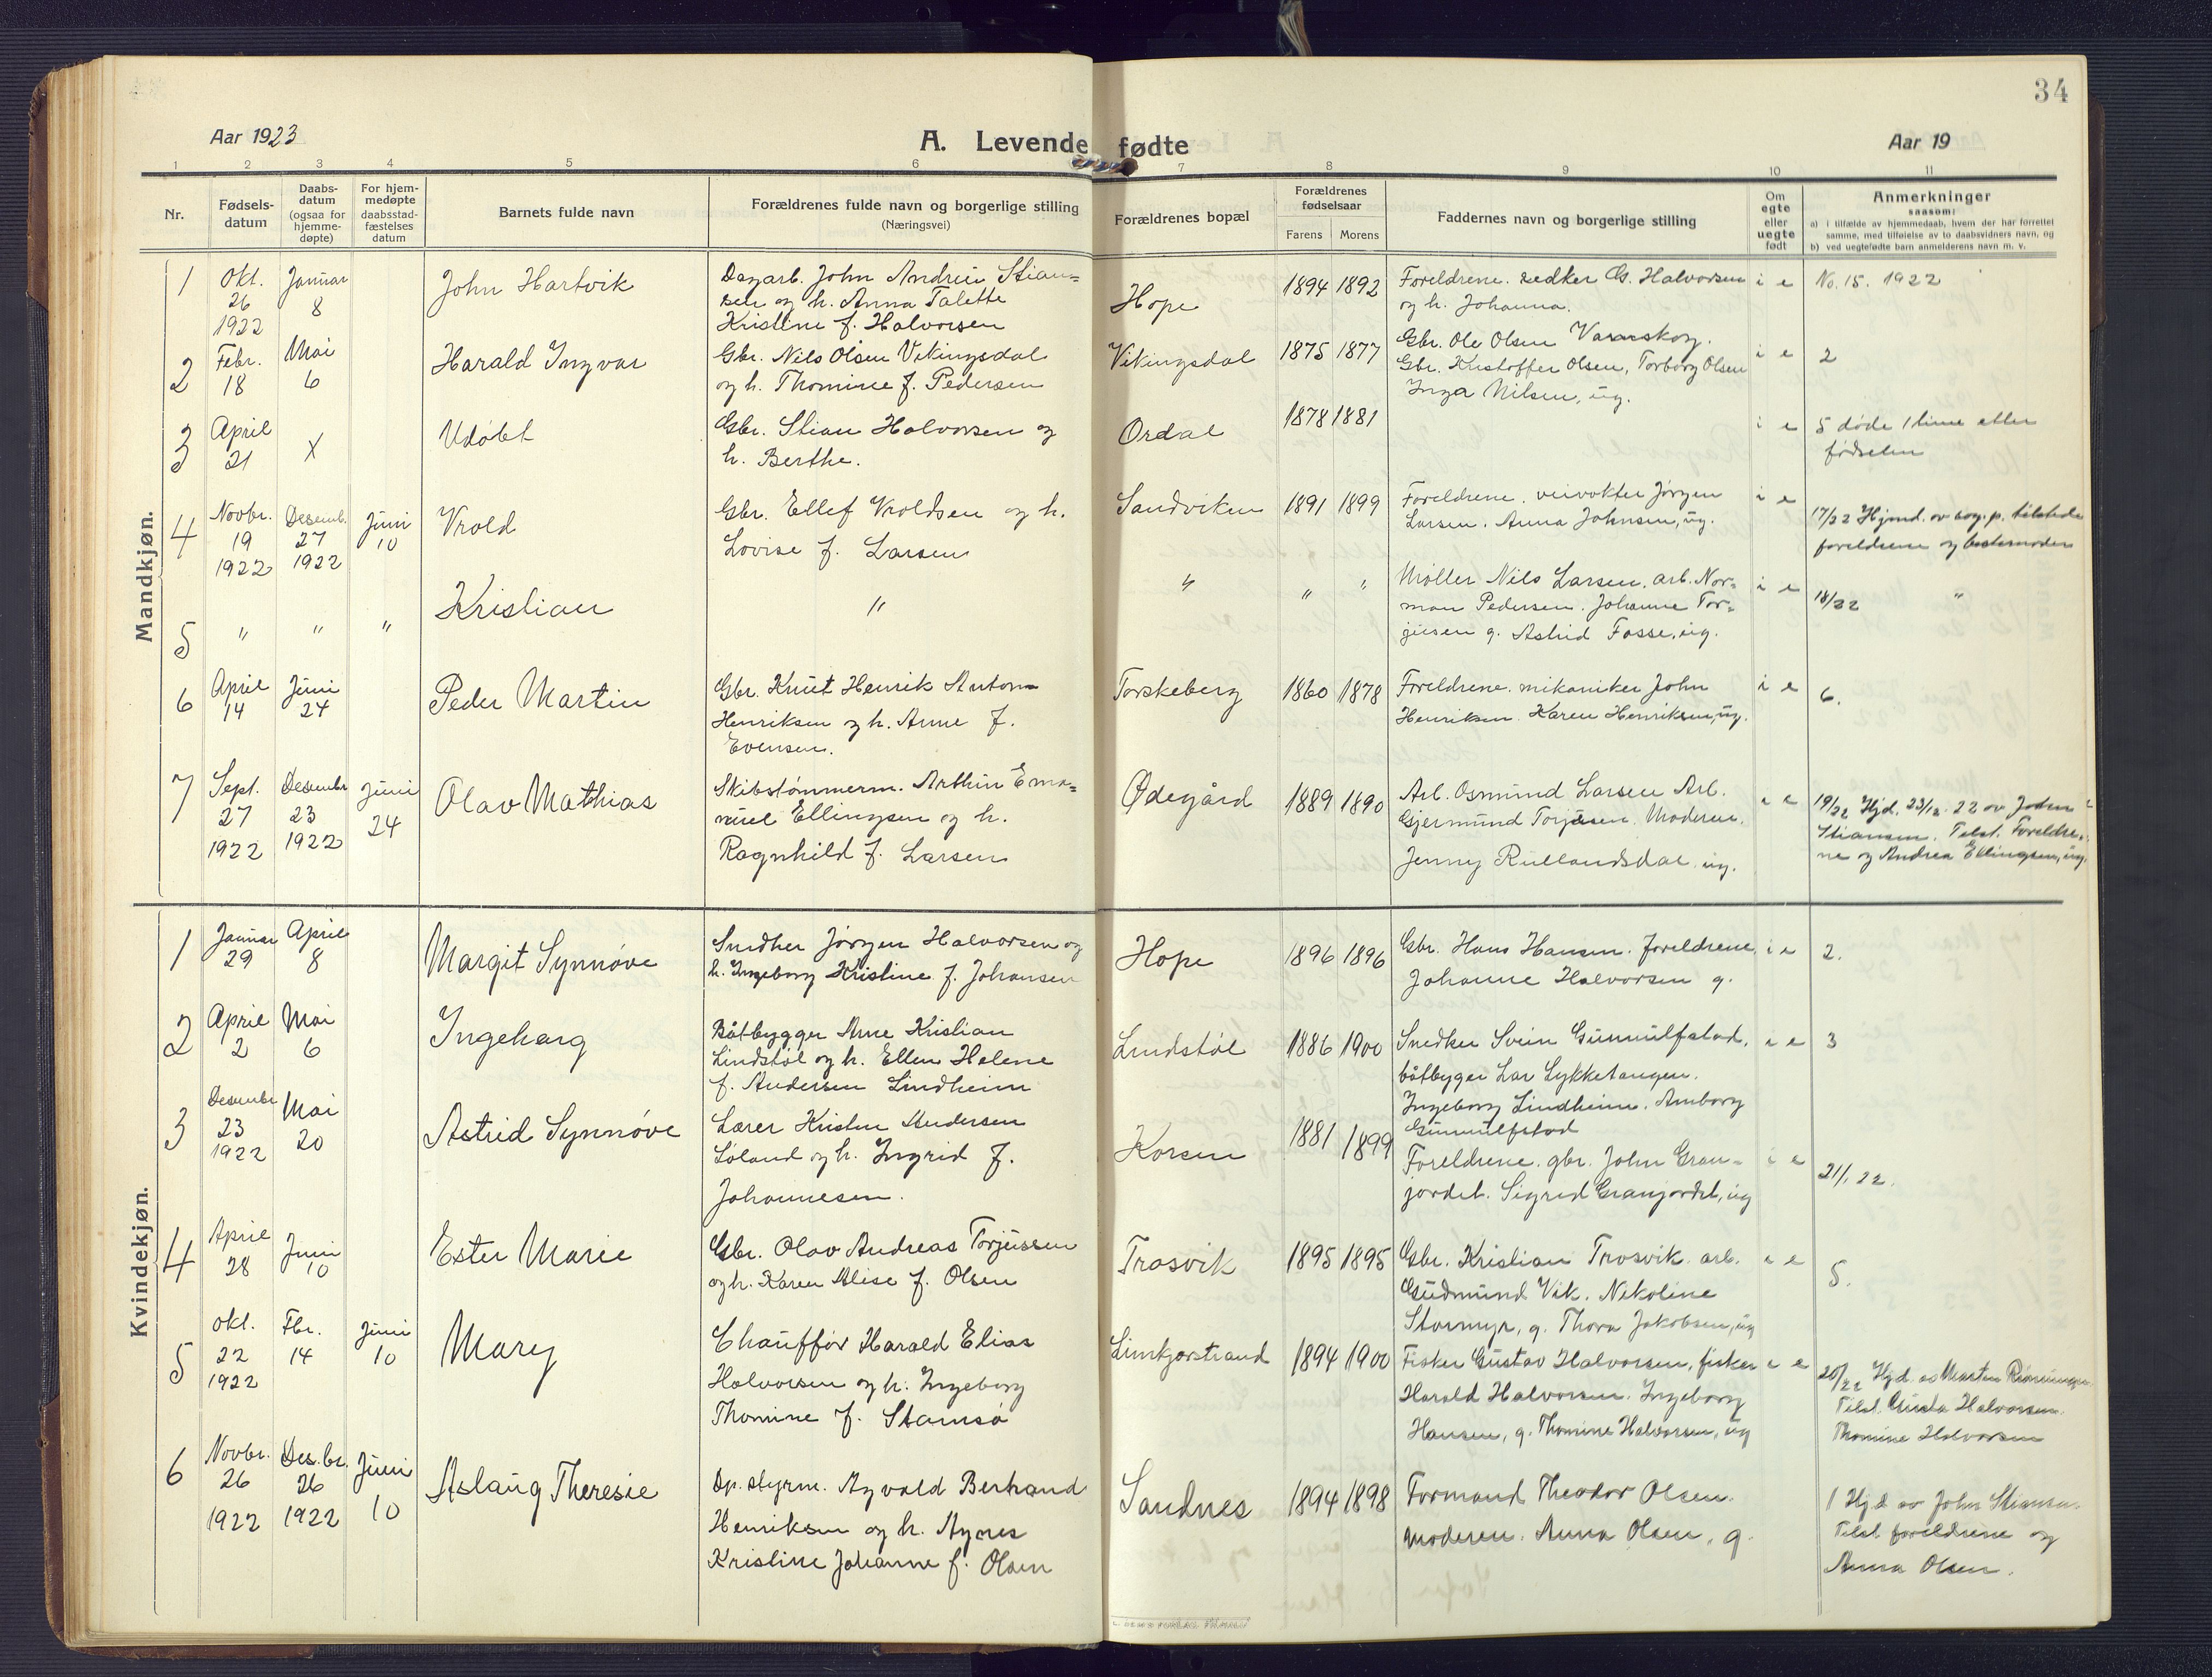 34
Aar 1923
A. Levende fødte
Aar 19
1 2 3 4 5 6 7 8 9 10 11
Nr.
Fødsels-
datum
Daabs-
datum
(ogsaa for
hjemme-
døpte)
For hjem-
medøpte
daabsstad-
fæstelses
datum
Barnets fulde navn
Forældrenes fulde navn og borgerlige stilling
(Næringsvei)
Forældrenes bopæl
Forældrenes
fødselsaar
Farens Morens
Faddernes navn og borgerlige stilling
Om
egte
eller
uegte
født
Anmerkninger
saasom:
a) i tilfælde av hjemmedaab, hvem der har forrettet
samme, med tilføielse av to daabsvidners navn, og
b) ved uegtefødte barn anmelderens navn m. v.
Mandkjøn.
1
Okt.
26
1922
Januar
8
John Hartvik
Dagarb. John Andreu Stian-
sen og h. Anna Talette
Kristine f. Halvorsen
Hope
1894 1892
Foreldrene. G. Halvorsen
og h. Johanna.
i e
No. 15. 1922
2
Febr.
18
Mai
6
Harald Ingvar
Gbr. Nils Olsen Vikingsdal
og h. Thomine f. Pedersen
Vikingsdal
1875 1877
Gbr. Ole Olsen Vamskog.
Gbr. Kristoffer Olsen, Torborg Olsen
Inga Nilsen, ug.
i e
2
3
April
21
X
Udøbt
Gbr. Stian Halvorsen og
h. Berthe.
Ordal
1878 1881
i e
5 døde 1 time etter
fødselen
4
Novbr.
19
1922
Desemb.
27
1922
Juni
10
Vrold
Gbr. Ellef Vroldsen og h.
Lovise f. Larsen
Sandviken
1891 1899
Foreldrene. veivokter Jørgen
Larsen. Anna Johnsen, ug.
i e
17/22 Hjmd. av sog.p. tilstede
foreldrene og bestemoder
5
" " "
Kristian
"
"
" "
Møller Nils Larsen. arb. Nor-
man Pedersen. Johanne Tor-
jusen g. Astrid Fosse, ug.
i e
18/22 "
6
April
14
Juni
24
Peder Martin
Gbr. Knut Henrik Anton
Henriksen og h. Anne f.
Evensen.
Torskeberg
1860 1878
Foreldrene. mikaniker John
Henriksen. Karen Henriksen, ug.
i e
6.
7
Sept.
27
1922
Desembr
23
1922
Juni
24
Olav Mathias
Skibstømmerm. Arthur Ema-
nuel Ellingsen og h.
Ragnhild f. Larsen
Ødegård
1889 1890
Arb. Osmund Larsen Arb.
Gjermund Torjusen. Moderen.
Jenny Rullandsdal ug.
i e
19/22 Hjd. 23/12. 22 av
Stiansen. Tilst. Foreldre-
ne og Andrea Ellingsen, ug.
Kvindekjøn.
1
Januar
29
April
8
Margit Synnøve
Snedker Jørgen Halvorsen og
h. Ingeborg Kristine f. Johansen
Hope
1896 1896
Gbr. Hans Hansen. Foreldrene,
Johanne Halvorsen g.
i e
2.
2
April
2
Mai
6
Ingeharg
Båtbygger Arne Kristian
Lindstøl og h. Ellen Helene
f. Andersen Lindheim
Lindstøl
1886 1900
Snedker Svein Gunnulfstad,
båtbyger Lar Lykketangen.
Ingeborg Lindheim. Amborg
Gunnulfstad
i e
3
3
Desembr
23
1922
Mai
20
Astrid Synnøve
Lærer Kristen Andersen
Løland og h. Ingrid f.
Johannesen.
Korsen
1881 1899
Foreldrene. gbr. John Gran-
jordet. Sigrid Granjordet, ug
i e
21/. 22.
4
April
28
Juni
10
Ester Marie
Gbr. Olav Andreas Torjussen
og h. Karen Alise f. Olsen
Trosvik
1895 1895
Gbr. Kristian Trosvik arb.
Gudmund Vik. Nikoline
Stormyr, g. Thora Jakobsen, ug
i e
5.
5
Okt.
22
1922
Fbr.
14
Juni
10
Mary
Chauffør Harald Elias
Halvorsen og h. Ingeborg
Thomine f. Stamsø
Limkjørstrand
1894 1900
Fisker Gustav Halvorsen, fisker
Harald Halvorsen. Ingeborg
Hansen, g. Thomine Halvorsen, ug
i e
20/22 Hjd. av Marten
Tilst. Halvorsen.
Thomine Halvorsen
6
Novbr.
26
1922
Des.br.
26
1922
Juni
10
Aslaug Theresie
Dp. styrm. Agvald Bertrand
Henriksen og h. Agnes
Kristine Johanne f. Olsen
Sandnes
1894 1898
Formand Theodor Olsen.
Moderen. Anna Olsen, g.
1 Hjd av John Stiansen.
Tilst. foreldrene og
Anna Olsen.